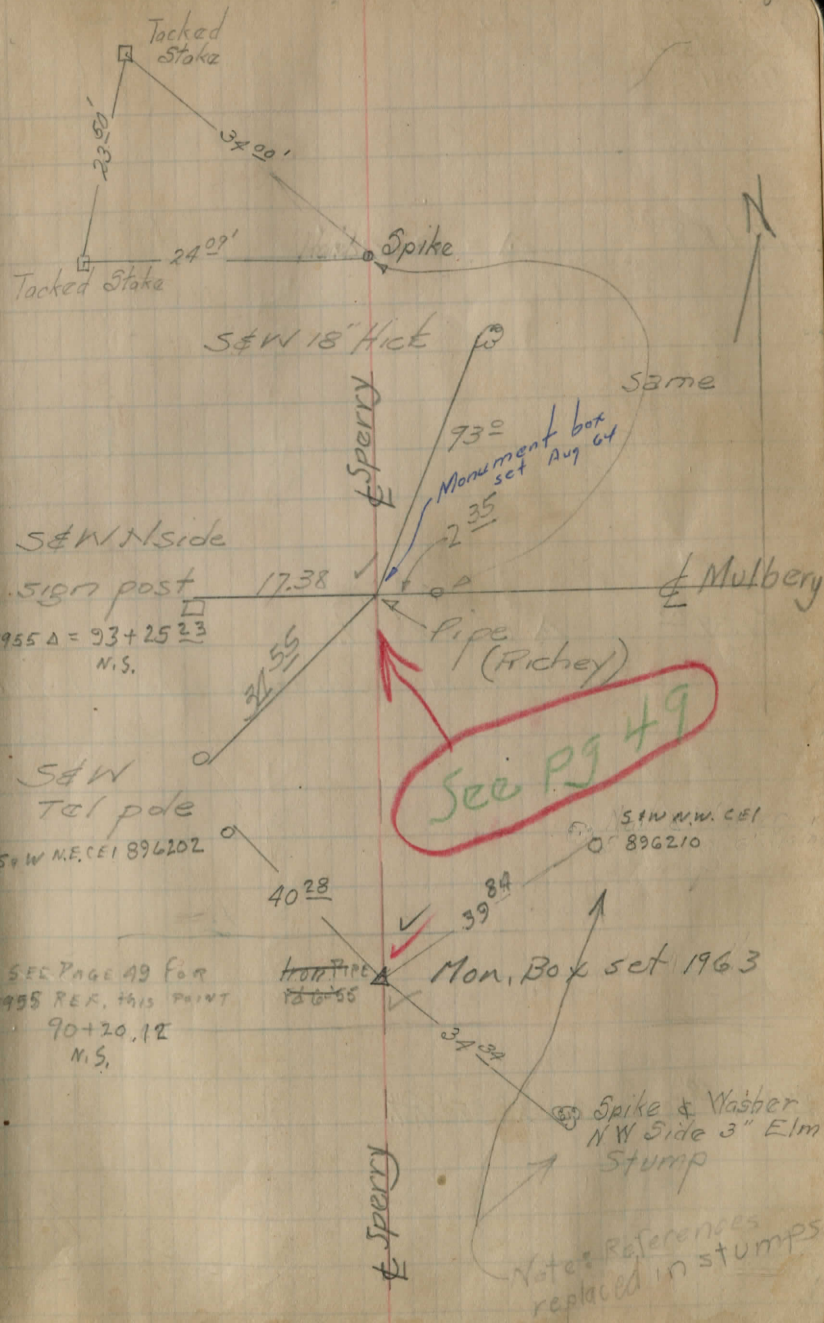 Tacked
Stake
23 50'
34 00'
24 07'
Spike
Tacked Stake
N
S&W 18" Hick
Same
℄ Sperry
93 0
Monument box
set Aug 64
2 35
S&W N side
sign post
17.38
℄ Mulbery
955 Δ = 93+25 23
N.S.
Pipe
(Richey)
55
See Pg 49
S&W
Tel pole
S&W N.E. CEI 896202
S&W N.W. CEI
896210
40 28
39 84
SEE PAGE 49 FOR
1955 REF. this POINT
90+20.12
N.S.
Iron PIPE
Mon. Box set 1963
34 34
Spike & Washer
NW Side 3" Elm
Stump
℄ Sperry
Note: References
replaced in stumps